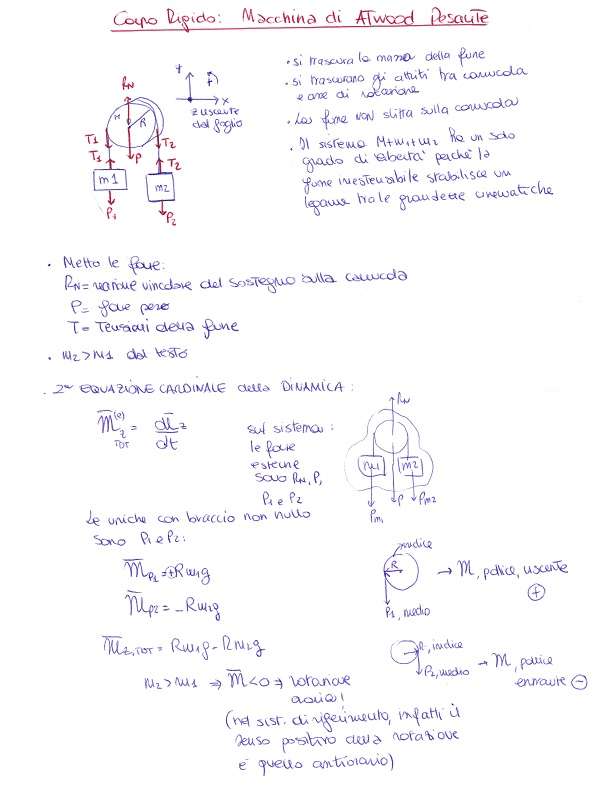 Corpo Rigido: Macchina di Atwood Pesante
• si trascura la massa della fune
• si trascurano gli attriti tra carrucola
e asse di rotazione
• La fune non slitta sulla carrucola
• Il sistema M+m1+m2 ha un solo
grado di libertà perché la
fune inestensibile stabilisce un
legame tra le grandezze cinematiche
RN
M
R
T1
T2
T1
P
T2
m1
m2
P1
P2
x
z uscente
dal foglio
• Metto le forze:
RN = reazione vincolare del sostegno sulla carrucola
P = forze peso
T = Tensioni della fune
• m2 > m1 dal testo
• 2ª EQUAZIONE CARDINALE della DINAMICA:
M z TOT (e) = dLz/dt
sul sistema:
le forze
esterne
sono RN, P,
P1 e P2
RN
m1
m2
Pm1
P
Pm2
Le uniche con braccio non nullo
sono P1 e P2:
MP1 = +Rm1g
MP2 = -Rm2g
indice
R
P1, medio
→ M, pollice, uscente
+
Mz,TOT = Rm1g - Rm2g
R, indice
P2, medio
→ M, pollice
entrante -
m2 > m1 ⇒ M<0 ⇒ rotazione
oraria!
(nel sist. di riferimento, infatti il
senso positivo della rotazione
è quello antiorario)